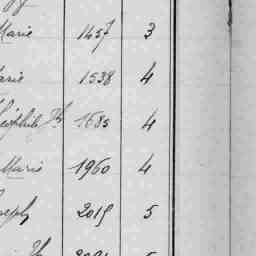 Marie 1457 3
Marie 1538 4
Théophile Th 1685 4
Marie 1960 4
Joseph 2019 5